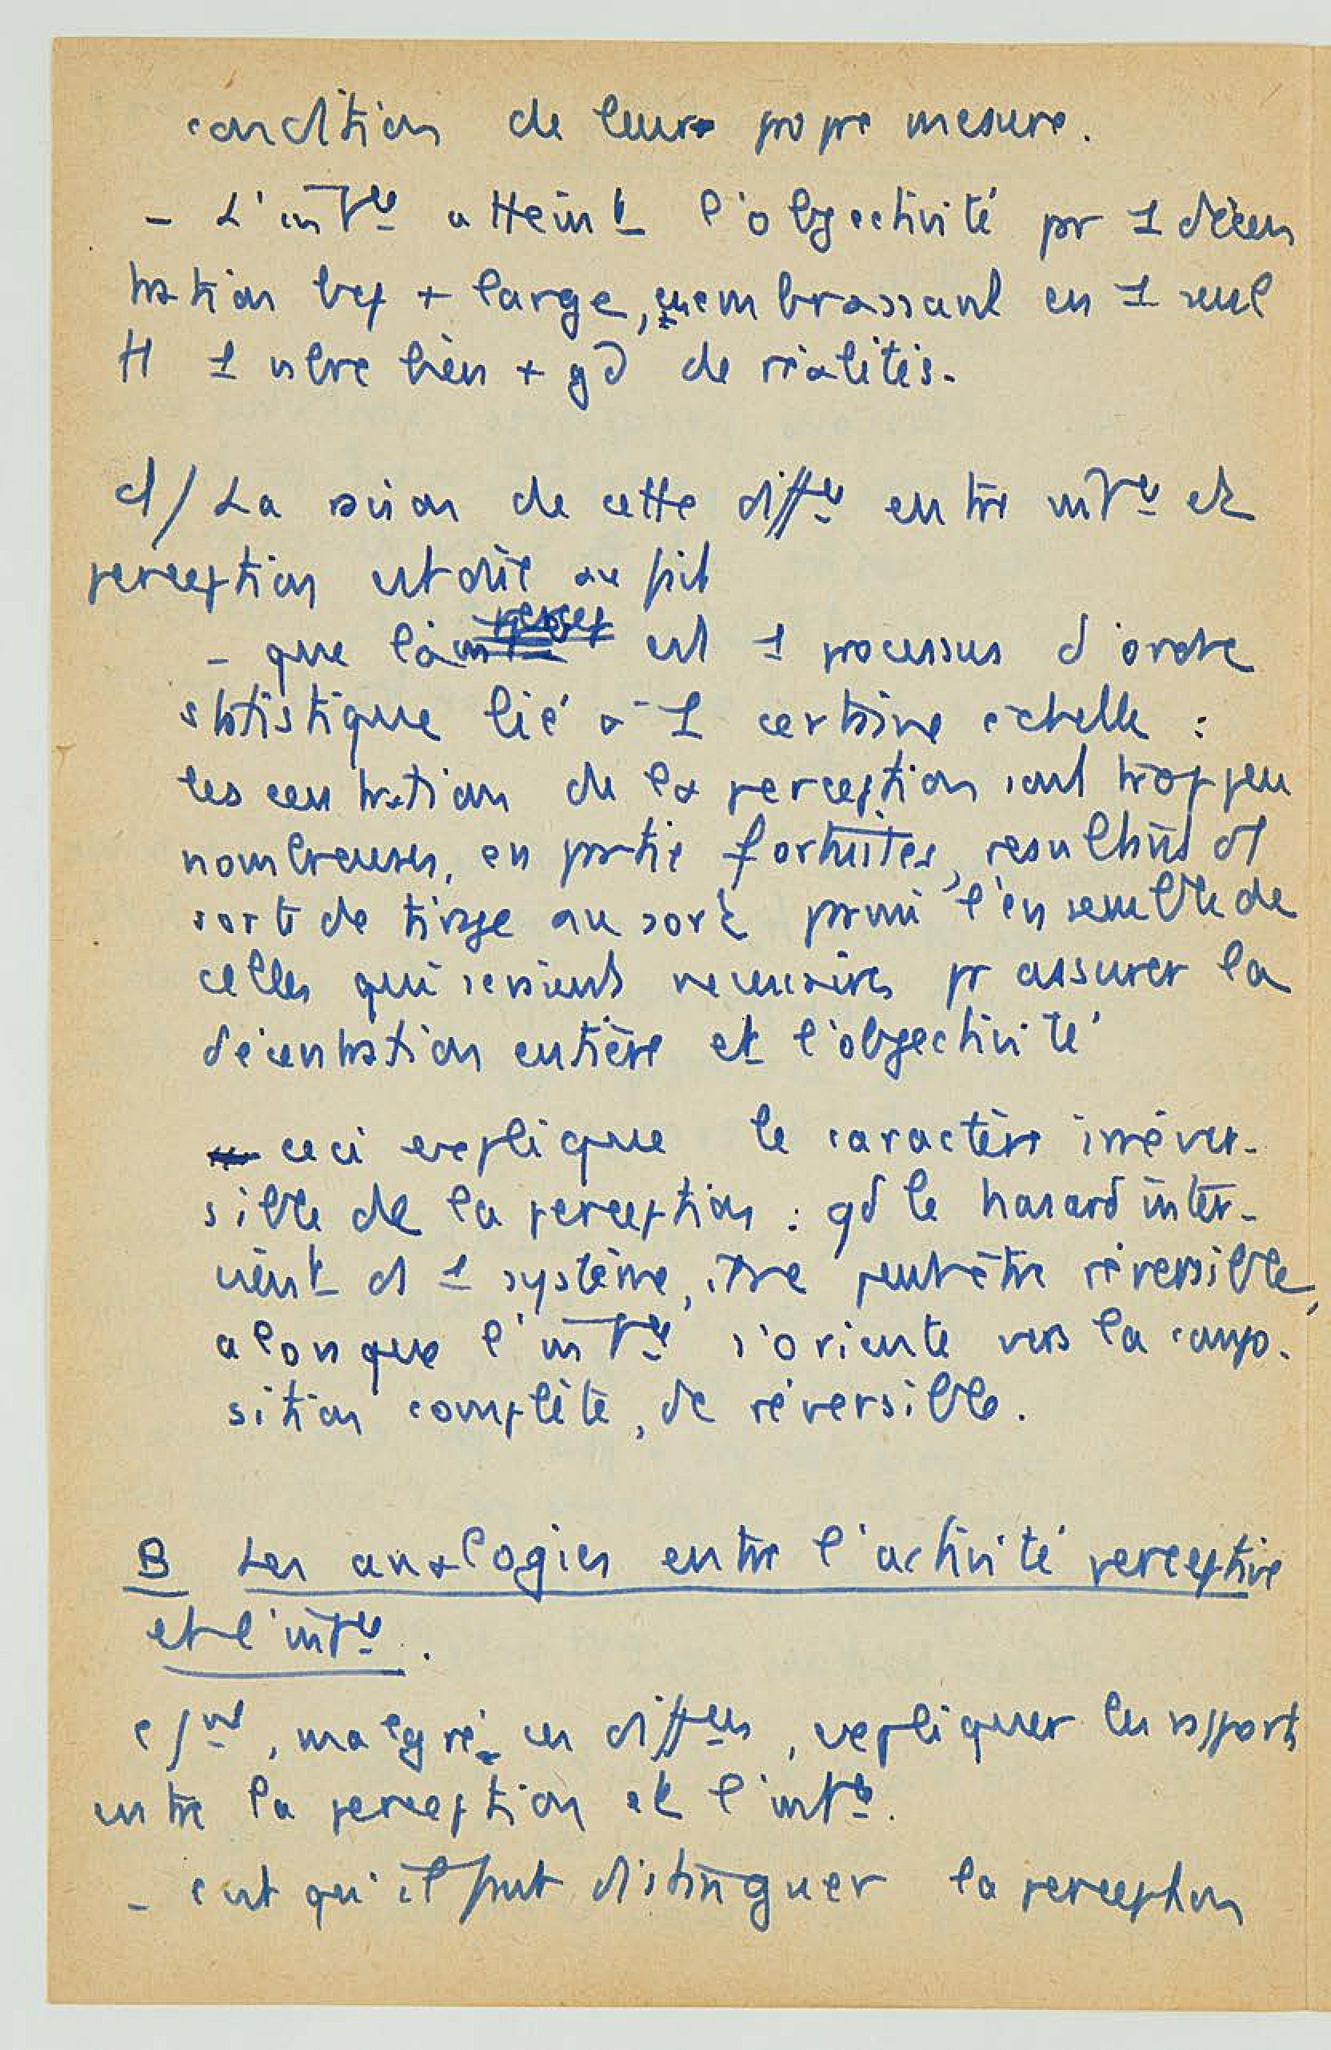 condition de leur propre mesure.
- L'int ce atteint l'objectivité pr 1 décen
tration bcp + large, embrassant en 1 seul
tt 1 nbre bien + gd de réalités.
d/ La raison de cette diff ce entre int ce et
perception est dûe au fait
- que la percep est 1 processus d'ordre
statistique lié à 1 certaine échelle :
les centration de la perception sont trop peu
nombreuses, en partie fortuites, résultant d'1
sorte de tirage au sort parmi l'ensemble de
celles qui seraient nécessaires pr assurer la
décentration entière et l'objectivité
ceci explique le caractère irréver-
sible de la perception : qd le hasard inter-
vient ds 1 système, il ne peut être réversible,
alors que l'int ce s'oriente vers la compo-
sition complète, dc réversible.
B Les analogies entre l'activité perceptive
et l'int ce.
, malgré ces diff ces, expliquer les rapports
entre la perception et l'int ce.
- c'est qu'il faut distinguer la perception